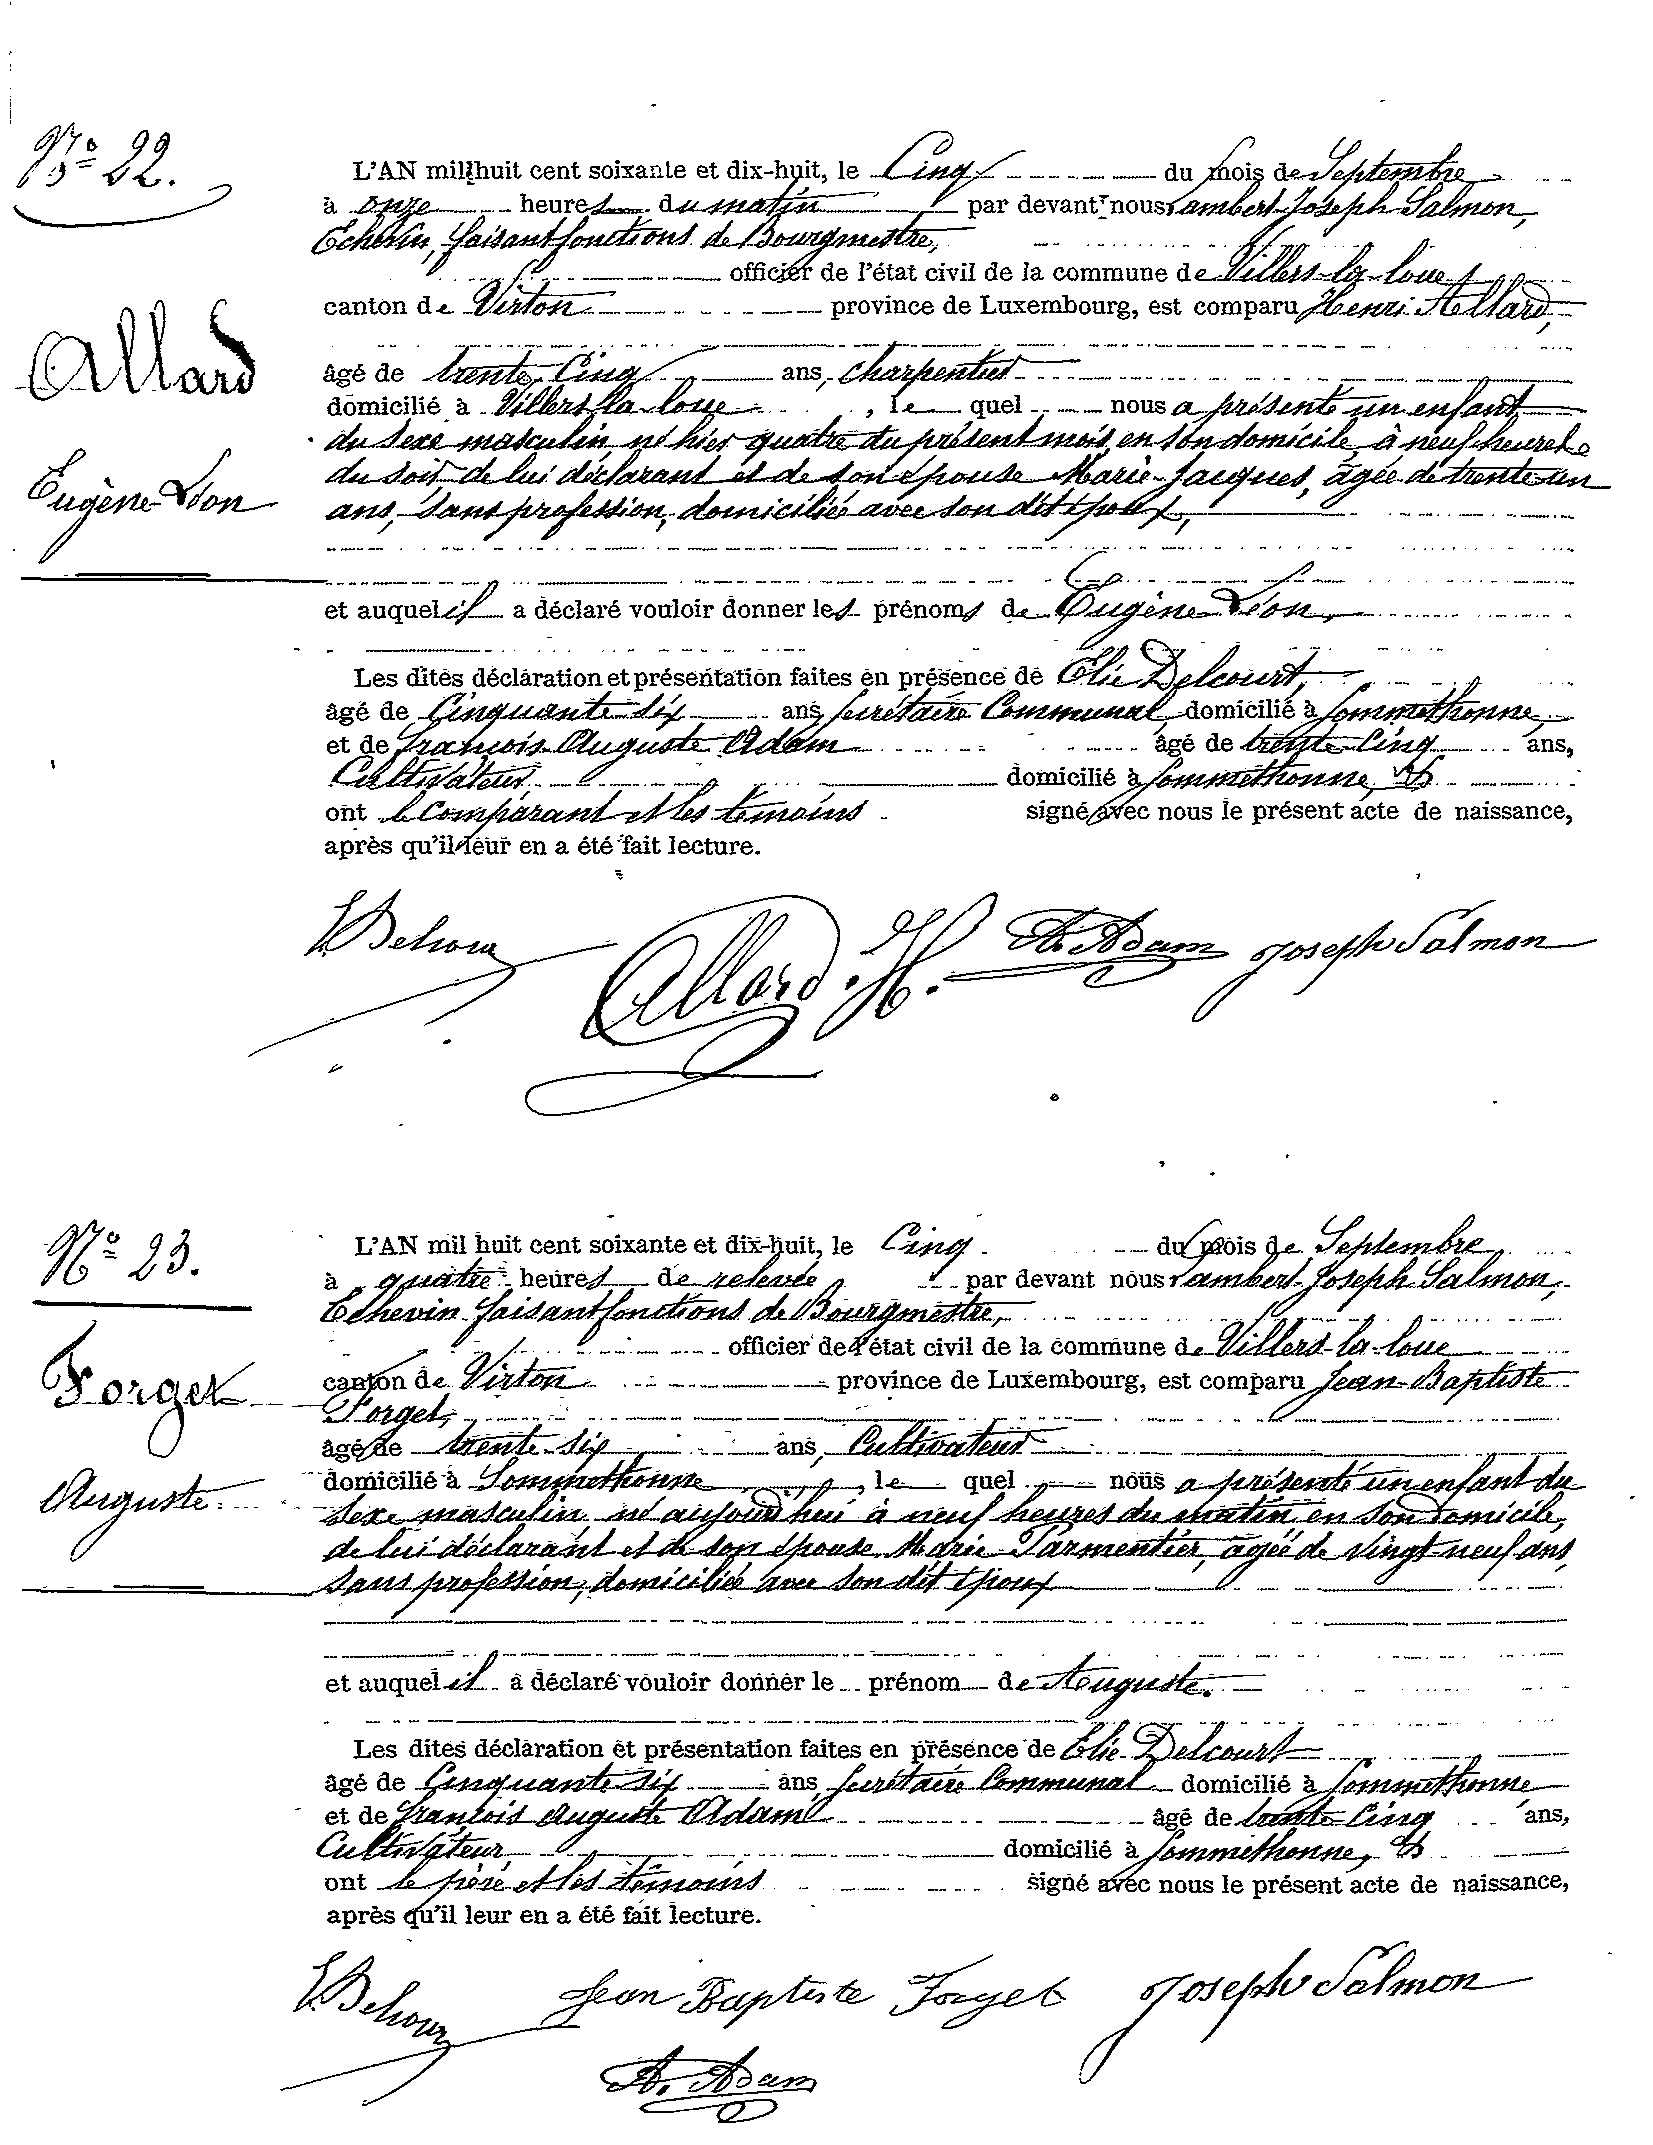 N° 22.
Allard
Eugène Léon
L'AN mil huit cent soixante et dix-huit, le Cinq du mois de Septembre
à onze heures du matin par devant nous Lambert Joseph Salmon,
Echevin, faisant fonctions de Bourgmestre,
officier de l'état civil de la commune de Villers-la-loue
canton de Virton province de Luxembourg, est comparu Henri Allard,
âgé de trente Cinq ans, charpentier
domicilié à Villers la loue, le quel nous a présenté un enfant
du sexe masculin, né hier quatre du présent mois, en son domicile, à neuf heures
du soir de lui déclarant et de son épouse Marie Jacques, âgée de trente-un
ans, sans profession, domiciliée avec son dit époux,
et auquel il a déclaré vouloir donner les prénoms de Eugène Léon,
Les dites déclaration et présentation faites en présence de Elie Delcourt,
âgé de Cinquante-six ans, secrétaire Communal, domicilié à Sommethonne,
et de François Auguste Adam âgé de trente-Cinq ans,
Cultivateur domicilié à Sommethonne, et
ont le comparant et les témoins signé avec nous le présent acte de naissance,
après qu'il leur en a été fait lecture.
Allard. H. A. Adam Joseph Salmon
N° 23.
Forget
Auguste.
L'AN mil huit cent soixante et dix-huit, le Cinq du mois de Septembre
à quatre heures de relevée par devant nous Lambert Joseph Salmon,
Echevin faisant fonctions de Bourgmestre,
officier de l'état civil de la commune de Villers-la-loue
canton de Virton province de Luxembourg, est comparu Jean-Baptiste
Forget,
âgé de trente-six ans, Cultivateur
domicilié à Sommethonne, le quel nous a présenté un enfant du
sexe masculin né aujourd'hui à neuf heures du matin en son domicile,
de lui déclarant et de son épouse Marie Parmentier, agée de vingt neuf ans,
sans profession, domiciliée avec son dit époux
et auquel il a déclaré vouloir donner le prénom de Auguste.
Les dites déclaration et présentation faites en présence de Elie Delcourt
âgé de Cinquante six ans, secrétaire Communal domicilié à Sommethonne
et de François Auguste Adam âgé de trente-Cinq ans,
Cultivateur domicilié à Sommethonne, et
ont le père et les témoins signé avec nous le présent acte de naissance,
après qu'il leur en a été fait lecture.
Jean Baptiste Forget Joseph Salmon
A. Adam